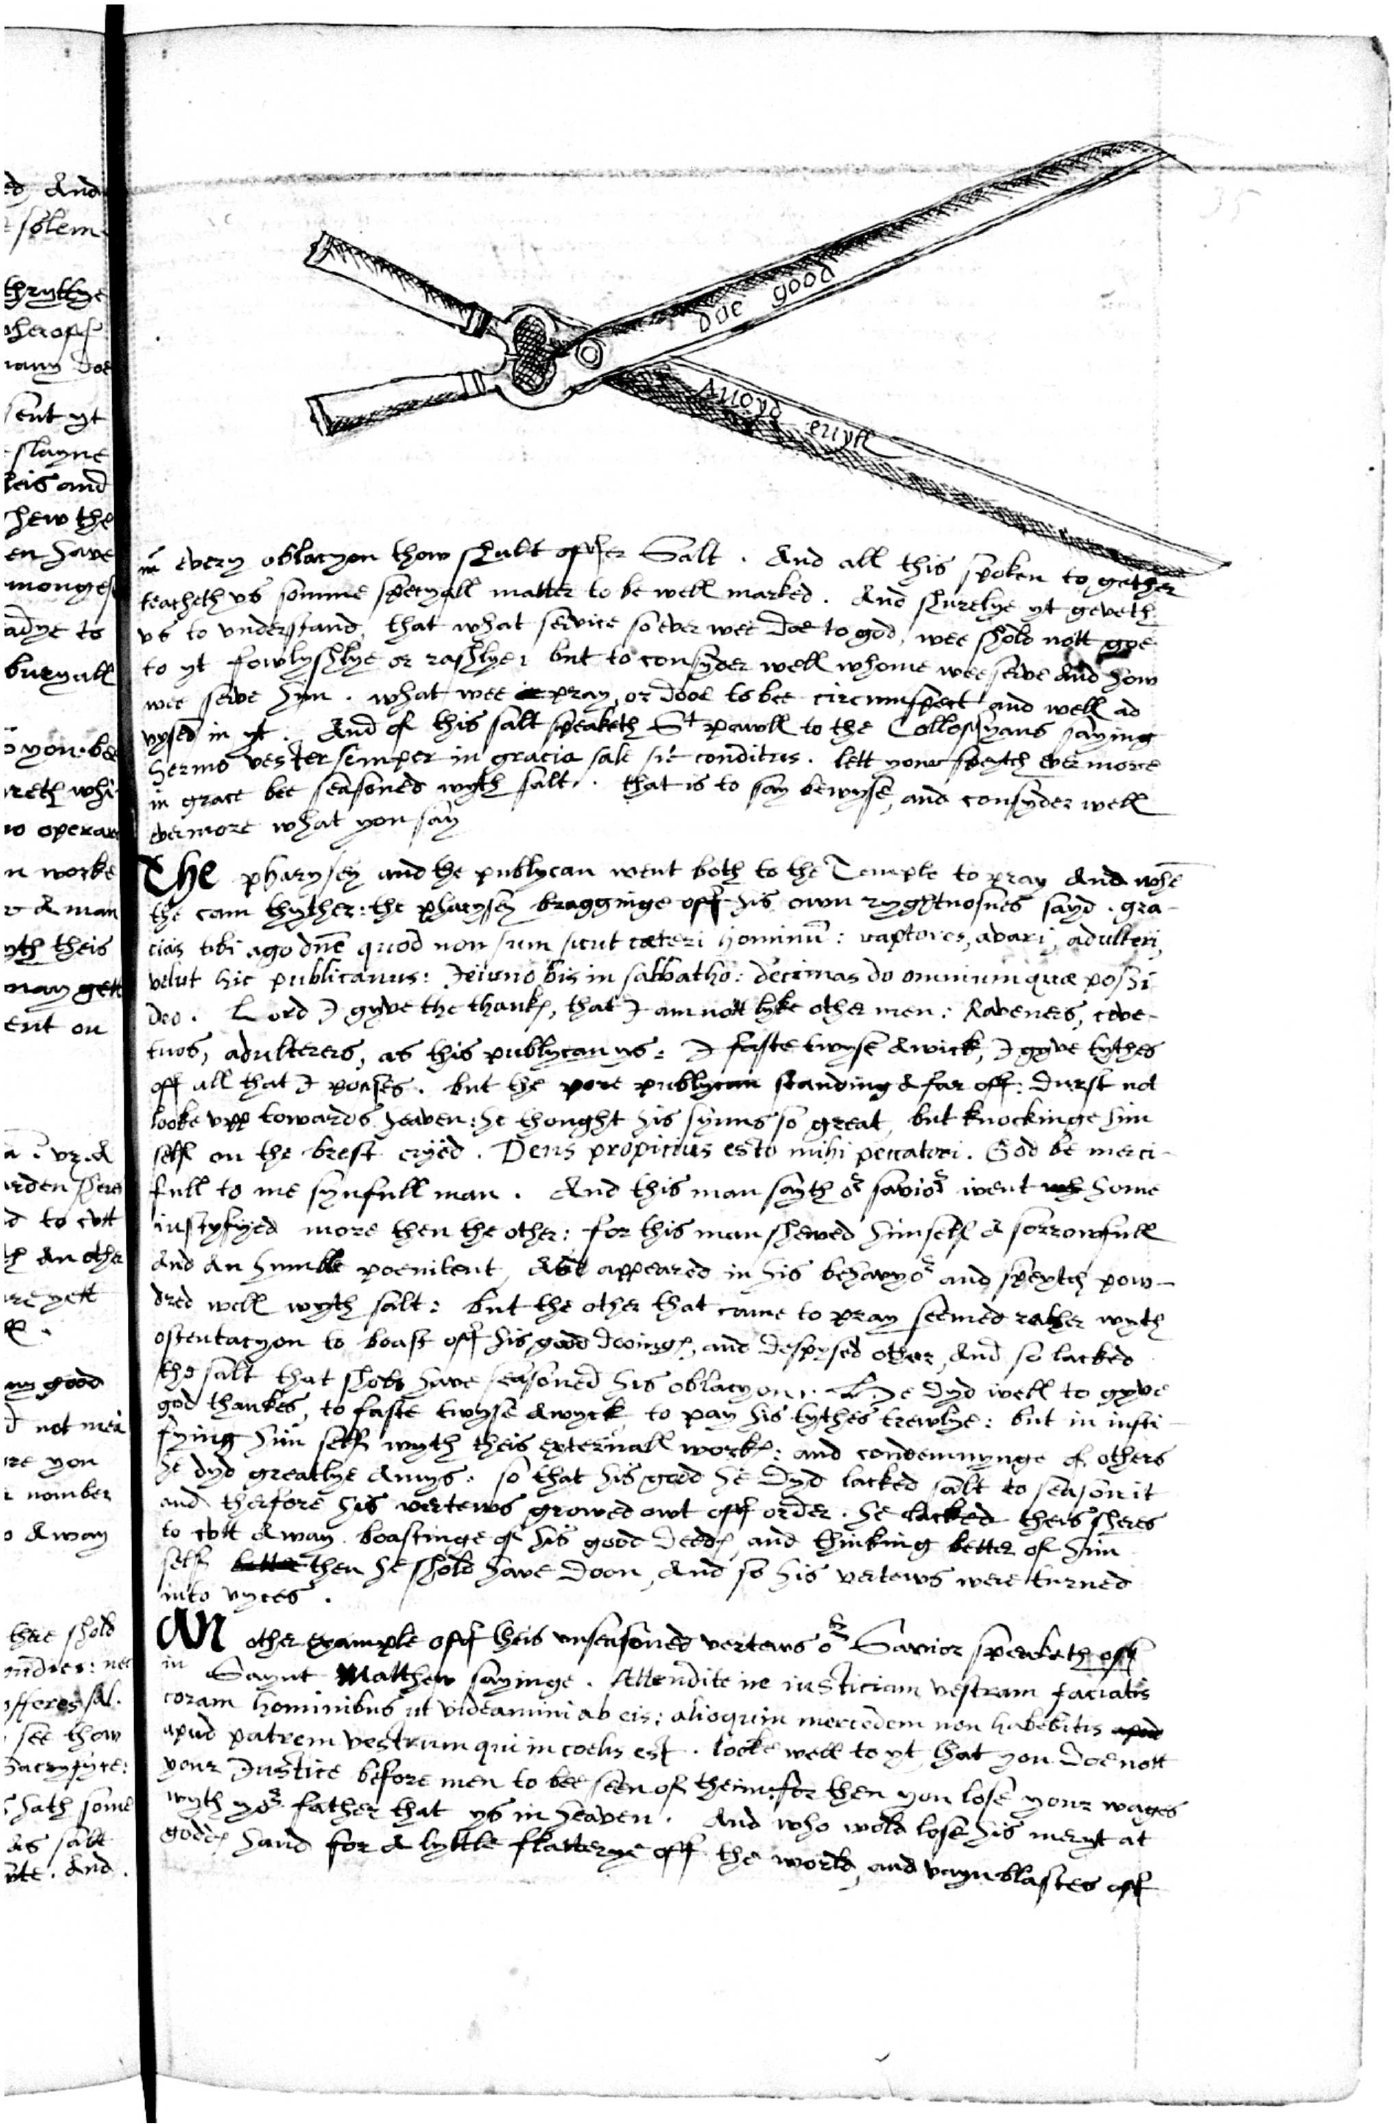 Doe good
Avoyd eviyll
in every oblacyon thow shult offer Salt . And all this spoken to gether
teacheth vs somme specyall matter to be well marked . And shurelye yt geveth
vs to vnderstand, that what service so ever wee doe to god, wee shold nott goe
to yt fowlyshlye or rashlye : but to consyder well whome wee serve And how
wee serve him . what wee pray, or dooe to bee circumspect and well ad
vysed in yt . And of this salt speaketh St pawll to the Collossyans saying
Sermo vester semper in gracia sale sit conditus . lett your speytch evermore
in grace bee seasoned wyth salt . that is to say bewyse, and consyder well
evermore what you say
The pharysey and the publycan went both to the Temple to pray And whē
the cam thyther : the pharysey bragginge off his own ryghtuosnes sayd . gra-
cias tibi ago dn̄e quod non sum sicut cæteri hominū : raptores, avari, adulteri,
velut hic publicanus : Jeiuno bis in sabbatho : decimas do omnium quæ possi
deo . Lord I gyve the thanks, that I am nott lyke other men : Raveners, cove-
tuos, adulterers, as this publycan ys : I faste twyse a wick, I gyve tythes
off all that I posses . but the pore publycan standing a far off : durst not
looke vpp towards heaven : he thought his synns so great, but knockinge him
self on the brest cryed . Deus propicius esto mihi peccatori . God be merci-
full to me synfull man . And this man sayth or savior went home
iustyfyed more then the other : for this man shewed himself a sorrowfull
And An humble poenitent, And appeared in his behavyor and speytch pow-
dred well wyth salt : but the other that came to pray seemed rather wyth
ostentacyon to boast off his good dooings, and despysed other, And so lacked
the salt that shold have seasoned his oblacyon . He dyd well to gyve
god thankes, to faste twyse a wyck, to pay his tythes trewlye : but in iusti-
fying him self wyth theis externall works : and condemnynge of others
he dyd greatlye Amys . so that his good he dyd lacked salt to season it
and therfore his vertews growed owt off order . he lacked theis sheres
to cutt away boastinge of his good deeds, and thinking better of him
self better then he shold have doon, And so his vertews were turned
into vyces .
An other example off theis vnseasoned vertews or Savior speaketh off
in Saynt Matthew sayinge . Attendite ne iusticiam vestram faciatis
coram hominibus ut videamini ab eis : alioquin mercedem non habebitis apud
apud patrem vestrum qui in coelis est . looke well to yt that you doe nott
your Justice before men to bee seen of them : for then you lose your wages
wyth yor father that ys in heaven . And who wold lose his meryt at
godds hand for a lyttle flatterye off the world, and vayn blastes off